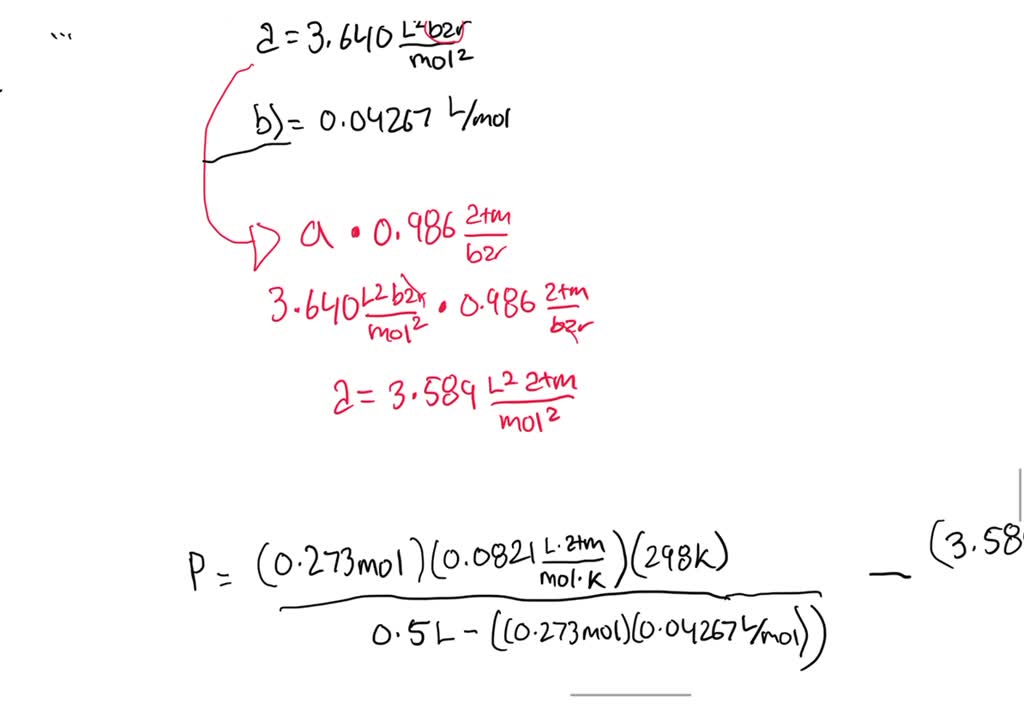 a = 3.640 L² bar / mol²
b) = 0.04267 L/mol
a • 0.986 atm / bar
3.640 L² bar / mol² • 0.986 atm / bar
a = 3.589 L² atm / mol²
P = (0.273 mol)(0.0821 L·atm / mol·K)(298K) / 0.5L - ((0.273mol)(0.04267 L/mol)) — (3.58